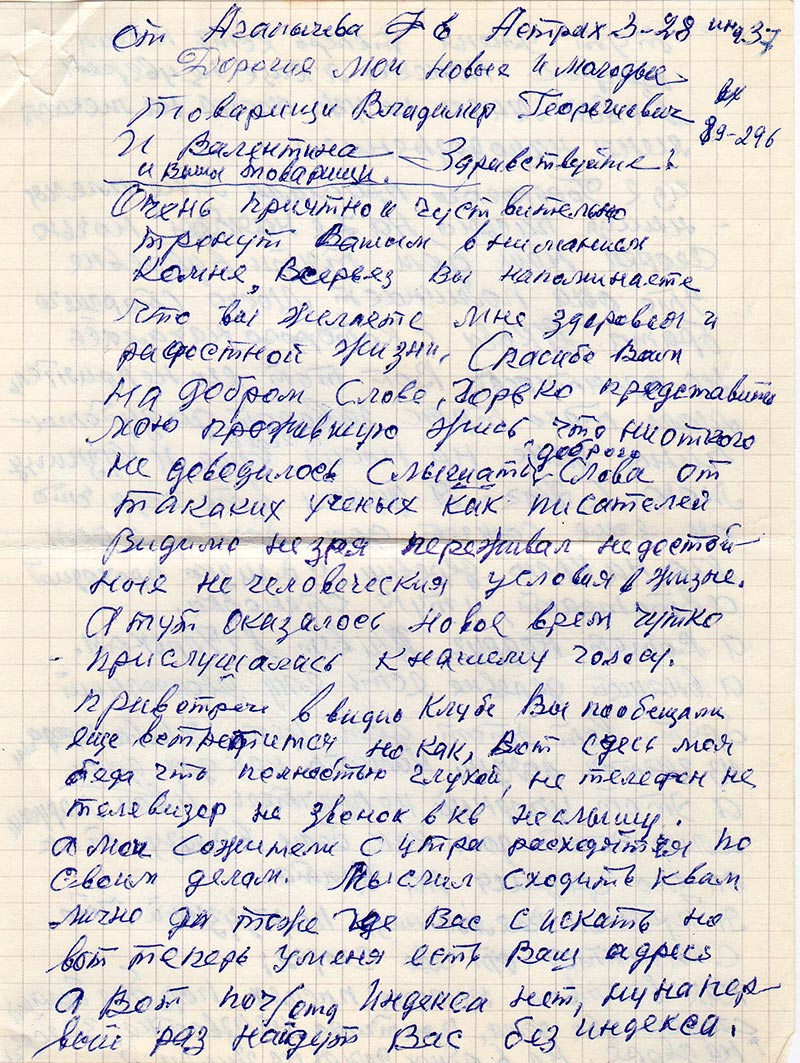 От Агапычева Ф в Астрах 3-28 инд 37
Дорогие мои новые и молодые
товарищи Владимер Георгиевич
вх 89-296
И Валентина Здравствуйте!
и Ваши товарищи.
Очень приятно и чуствительно
тронут Вашим вниманием
Комне, Всерьез Вы напоминаете
Что вы желаете мне здоровья и
радостной жизни. Спасибо Вам
На добром Слове, Горько представить
мою прожившую жись что ниоткого
не доводилось Слышать доброго Слова от
такаких ученых как писателей
Видимо незря переживал недостой-
ные не человеческия условия в жизне.
А тут оказалось Новое врем чутко
- прислушалась к нашему голосу.
При встрече в видио Клубе Вы пообещали
еще встретится но как, Вот сдесь моя
беда чть полностью глухой, не телефон не
телевизор не звонок в кв не слышу.
а мои Сожители с утра расходятся по
своим делам. Мыслил сходить к вам
лично да тоже где Вас с искать но
вот теперь у меня есть Ваш адрес
А Вот поч/отд Индекса нет, ну на пер-
вый раз найдут Вас без индекса.